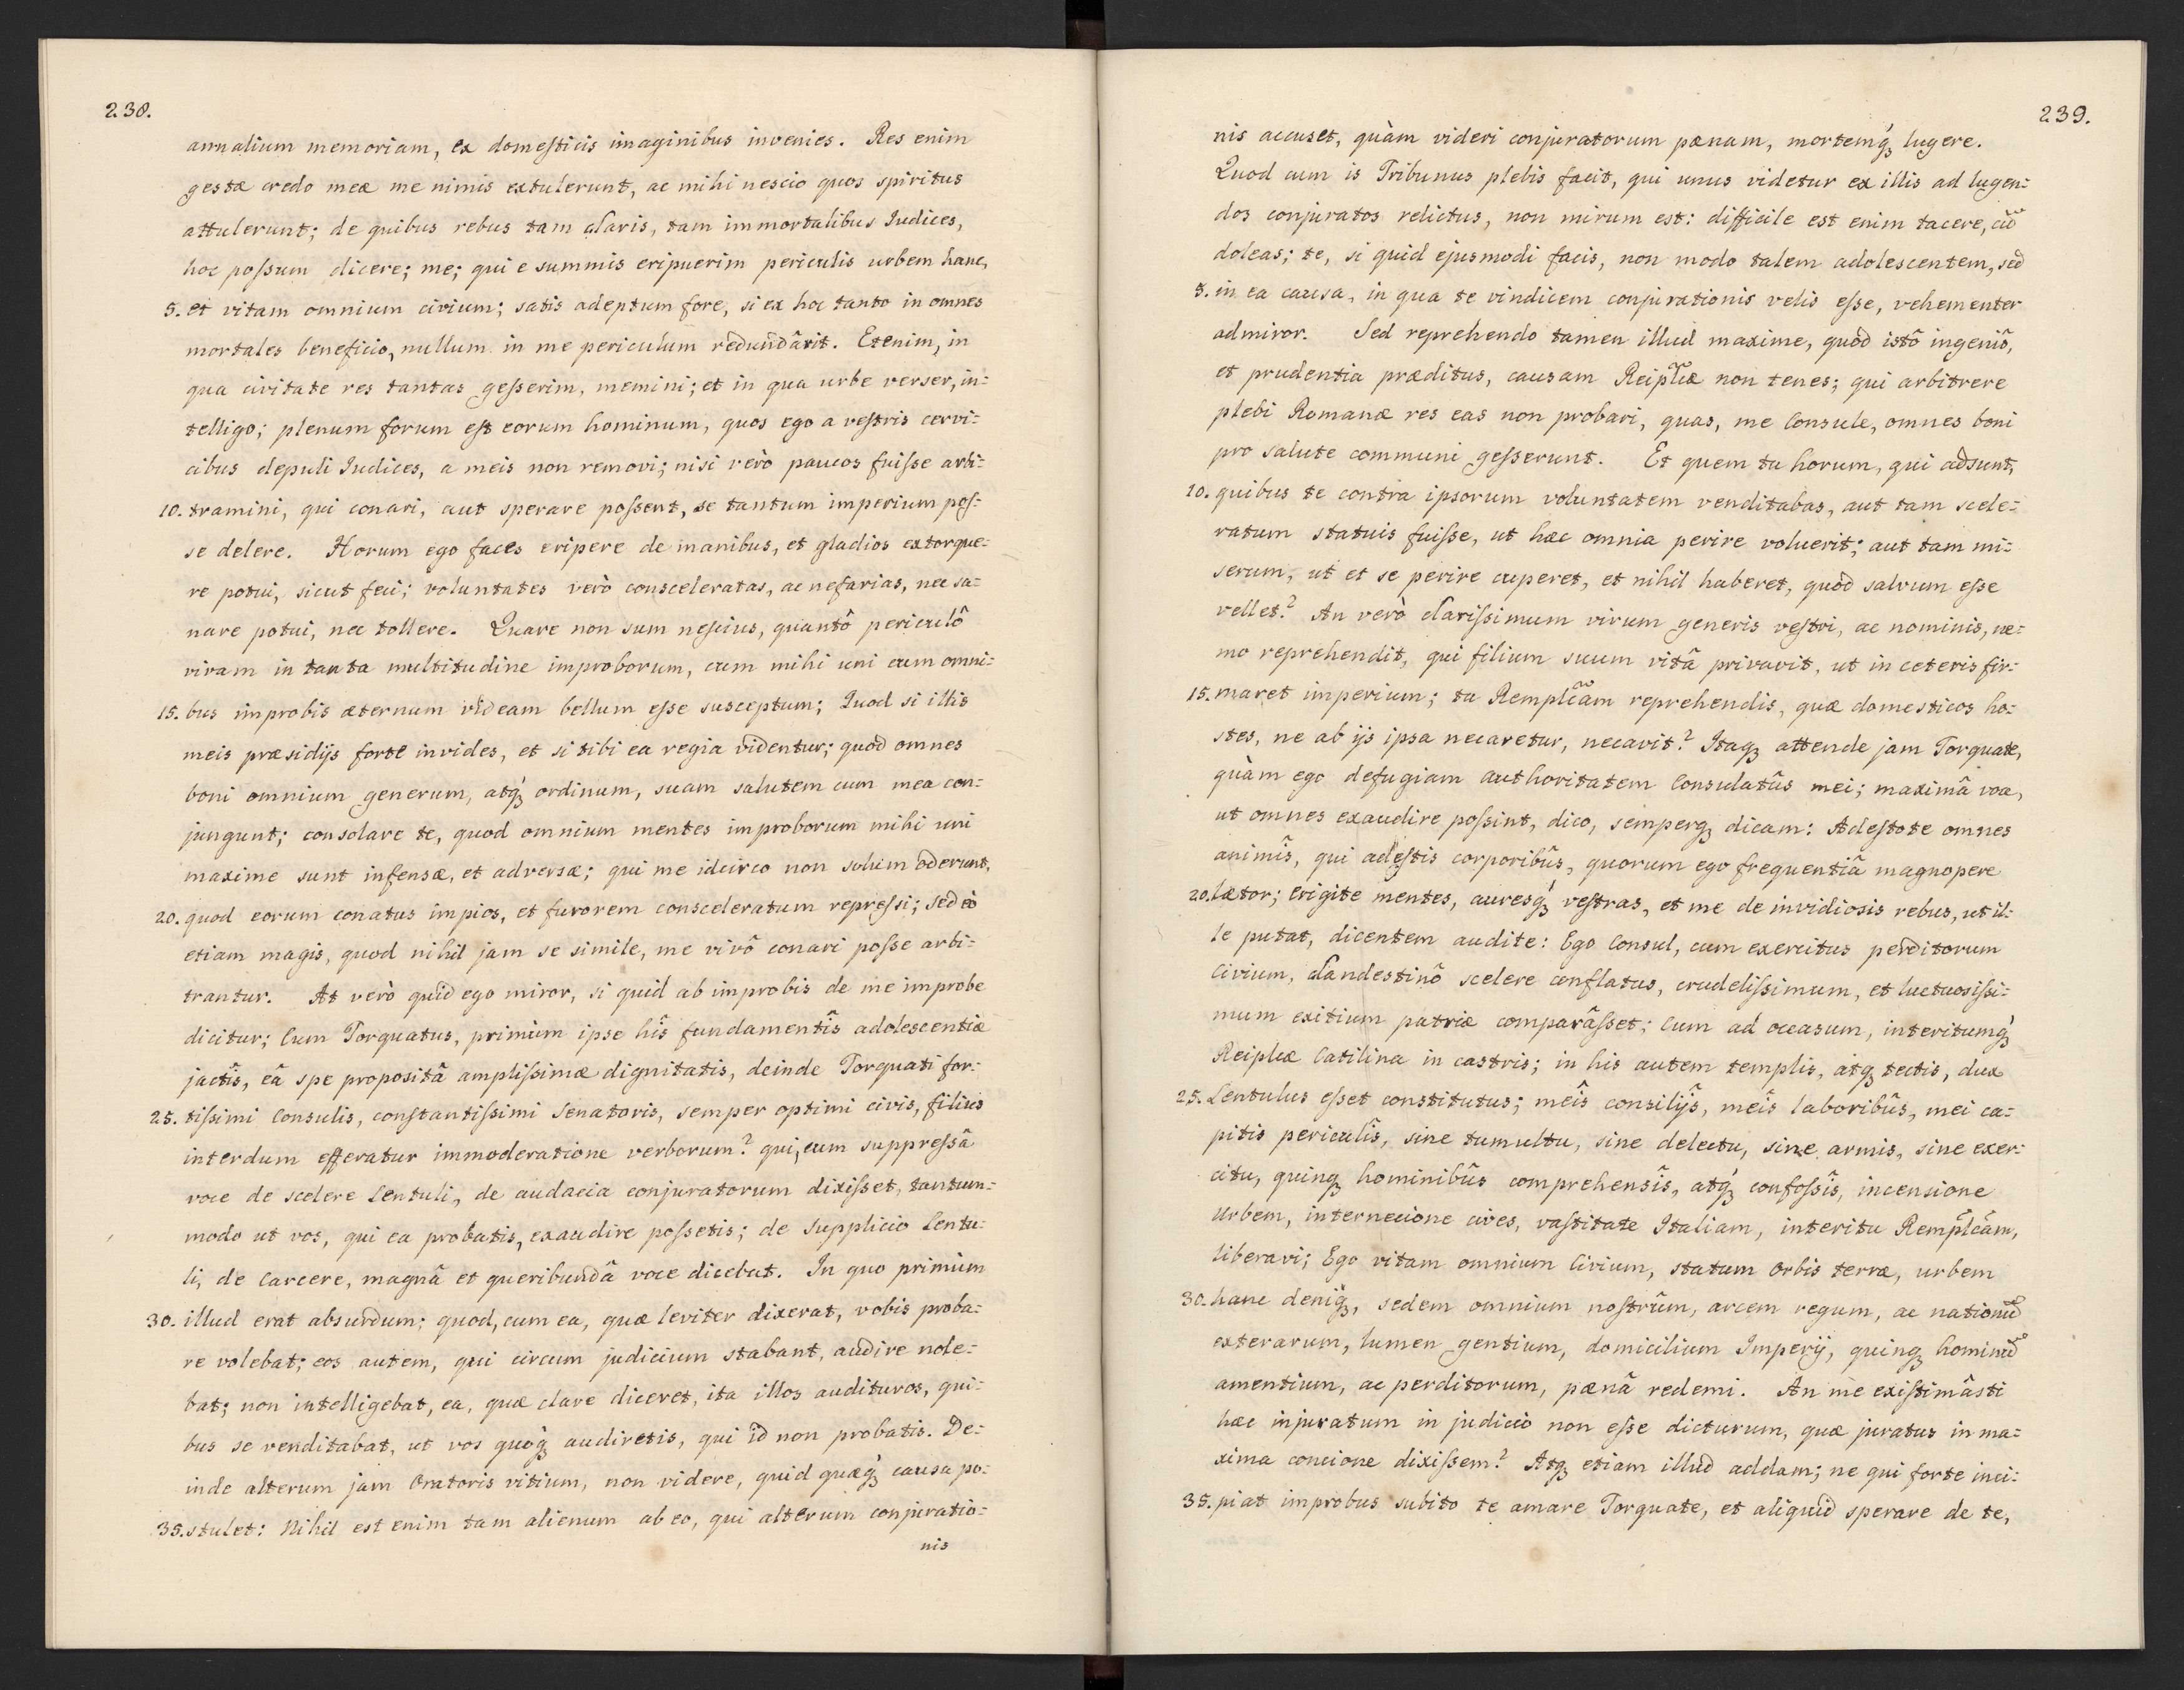 238.
annalium memoriam, ex domeſticis imaginibus invenies. Res enim
gestæ credo meæ me nimis extulerunt, ac mihi nescio quos spiritus
attulerunt; de quibus rebus tam claris, tam immortalibus Iudices,
hoc poſsum dicere; me; qui e summis eripuerim periculis urbem hanc,
5. et vitam omnium civium; satis adeptum fore, si ex hoc tanto in omnes
mortales beneficio, nullum in me periculum redundârit. Etenim, in
qua civitate res tantas geſserim, memini; et in qua urbe verser, in=
telligo; plenum forum eſt eorum hominum, quos ego a veſtris cervi=
cibus depuli Iudices, a meis non removi; nisi verò paucos fuiſse arbi=
10. tramini, qui conari, aut sperare poſsent, se tantum imperium poſ=
se delere. Horum ego faces eripere de manibus, et gladios extorque=
re potui, sicut feci; voluntates verò consceleratas, ac nefarias, nec sa=
nare potui, nec tollere. Quare non sum neſcius, quantô periculô
vivam in tanta multitudine improborum, cum mihi uni cum omni=
15. bus improbis æternum videam bellum eſse susceptum; Quod si illis
meis præsidijs forte invides, et si tibi ea regia videntur; quod omnes
boni omnium generum, atq́ꝫ ordinum, suam salutem cum mea con=
jungunt; consolare te, quod omnium mentes improborum mihi uni
maxime sunt infensæ, et adversæ; qui me idcirco non solum oderunt,
20. quod eorum conatus impios, et furorem consceleratum repreſsi; sed eò
etiam magis, quod nihil jam se simile, me vivô conari poſse arbi=
trantur. At verò quid ego miror, si quid ab improbis de me improbe
dicitur; Cum Torquatus, primùm ipse hîs fundamentîs adolescentiæ
jactîs, eâ spe propositâ ampliſsimæ dignitatis, deinde Torquati for=
25. tiſsimi Consulis, conſtantiſsimi Senatoris, semper optimi civis, filius
interdum efferatur immoderatione verborum? qui, cum suppreſsâ
voce de scelere Lentuli, de audacia conjuratorum dixiſset, tantum=
modo ut vos, qui ea probatis, exaudire poſsetis; de Supplicio Lentu=
li, de Carcere, magnâ et queribundâ voce dicebat. In quo primùm
30. illud erat absurdum; quod, cum ea, quæ leviter dixerat, vobis proba=
re volebat; eos autem, qui circum judicium stabant, audire nole=
bat; non intelligebat, ea, quæ clare diceret, ita illos audituros, qui=
bus se venditabat, ut vos quoq́ꝫ audiretis, qui id non probatis. De=
inde alterum jam Oratoris vitium, non videre, quid quæq́ꝫ causa po=
35. stulet: Nihil est enim tam alienum ab eo, qui alterum conjuratio=
nis
239.
nis accuset, quàm videri conjuratorum pænam, mortemq́ꝫ lugere.
Quod cum is Tribunus plebis facit, qui unus videtur ex illis ad lugen=
dos conjuratos relictus, non mirum est: difficile est enim tacere, cũ
doleas; te, si quid ejusmodi facis, non modo talem adolescentem, sed
5. in ea causa, in qua te vindicem conjurationis velis eſse, vehementer
admiror. Sed reprehendo tamen illud maxime, quòd istô ingeniô,
et prudentia præditus, causam Reipl̃cæ non tenes; qui arbitrere
plebi Romanæ res eas non probari, quas, me Consule, omnes boni
pro salute communi geſserunt. Et quem tu horum, qui adsunt,
10. quibus te contra ipsorum voluntatem venditabas, aut tam scele=
ratum statuis fuiſse, ut hæc omnia perire voluerit; aut tam mi=
serum, ut et se perire cuperet, et nihil haberet, quòd salvum eſse
vellet? An verò clariſsimum virum generis veſtri, ac nominis, ne=
mo reprehendit, qui filium suum vitâ privavit, ut in ceteris fir=
15. maret imperium; tu Rempl̃cam reprehendis, quæ domesticos ho=
stes, ne ab ijs ipsa necaretur, necavit? Itaqꝫ attende jam Torquate,
quàm ego defugiam authoritatem Consulatûs mei; maximâ voce,
ut omnes exaudire poſsint, dico, semperqꝫ dicam: Adeſtote omnes
animîs, qui adeſtis corporibûs, quorum ego frequentiâ magnopere
20. lætor; Erigite mentes, auresq́ꝫ veſtras, et me de invidiosis rebus, ut il=
le putat, dicentem audite: Ego Consul, cum exercitus perditorum
Civium, clandestinô scelere conflatus, crudeliſsimum, et luctuosiſsi=
mum exitium patriæ comparâſset; Cum ad occasum, interitumq́ꝫ
Reiplcæ Catilina in castris; in his autem templis, atqꝫ tectis, dux
25. Lentulus eſset constitutus; meîs consilijs, meîs laboribûs, mei ca=
pitis periculîs, sine tumultu, sine delectu, sine armis, sine exer=
citu, quinqꝫ hominibûs comprehensîs, atq́ꝫ confeſsîs, incensione
Urbem, internecione cives, vaſtitate Italiam, interitu Rempl̃cam,
liberavi; Ego vitam omnium Civium, statum Orbis terræ, urbem
30. hanc deniqꝫ, sedem omnium noſtrûm, arcem regum, ac nationũ
exterarum, lumen gentium, domicilium Imperij, quinqꝫ hominũ
amentium, ac perditorum, pænâ redemi. An me exiſtimâsti
hæc injuratum in judicio non eſse dicturum, quæ juratus in ma=
xima concione dixiſsem? Atqꝫ etiam illud addam; ne qui forte inci=
35. piat improbus subito te amare Torquate, et aliquid sperare de te,